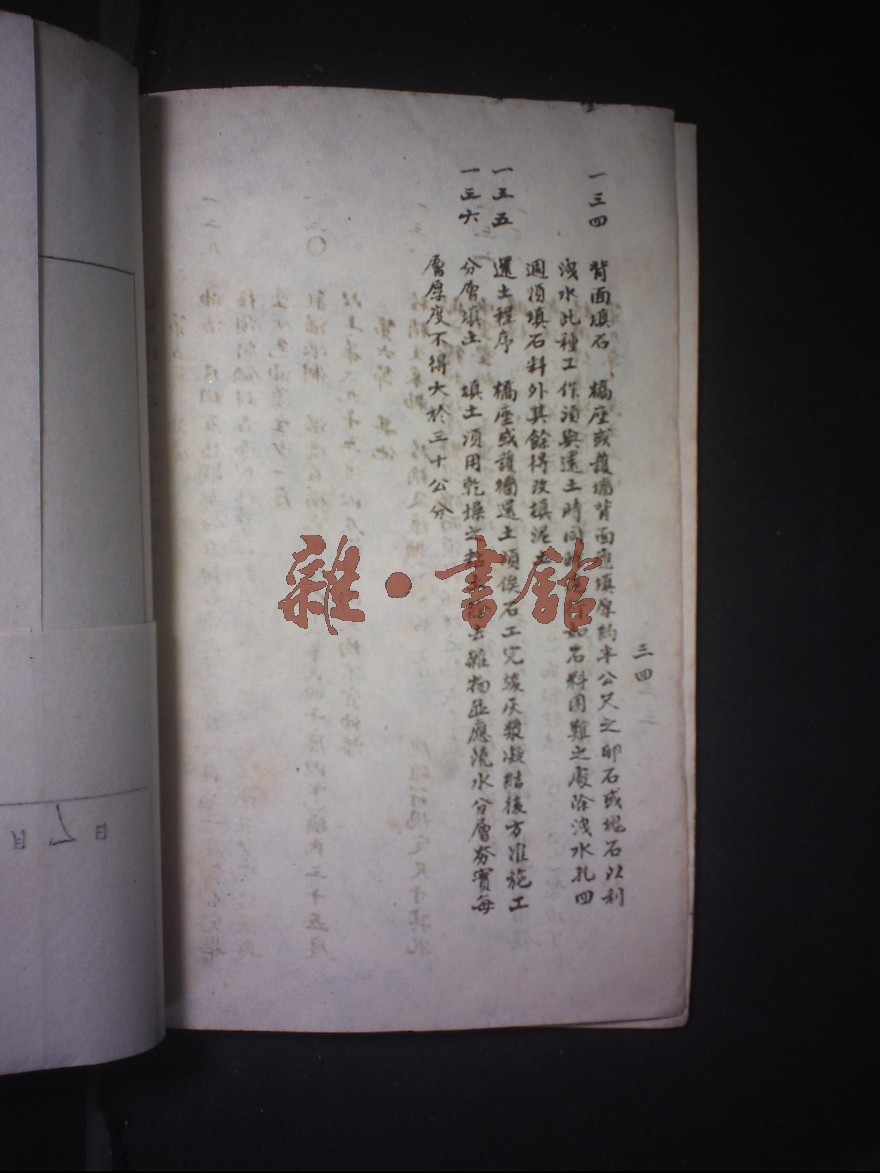 三四
一三四 背面填石 橋座或護墻背面應填厚約半公尺之卵石或塊石以利
洩水此種工作須與還土時同時 如石料困難之處除洩水孔四
週須填石料外其餘得改填泥土
一三五 還土程序 橋座或護墻還土須俟石工完竣灰漿凝結後方准施工
一三六 分層填土 填土須用乾燥之 去雜物並應澆水分層夯實每
層厚度不得大於三十公分
雜·書館